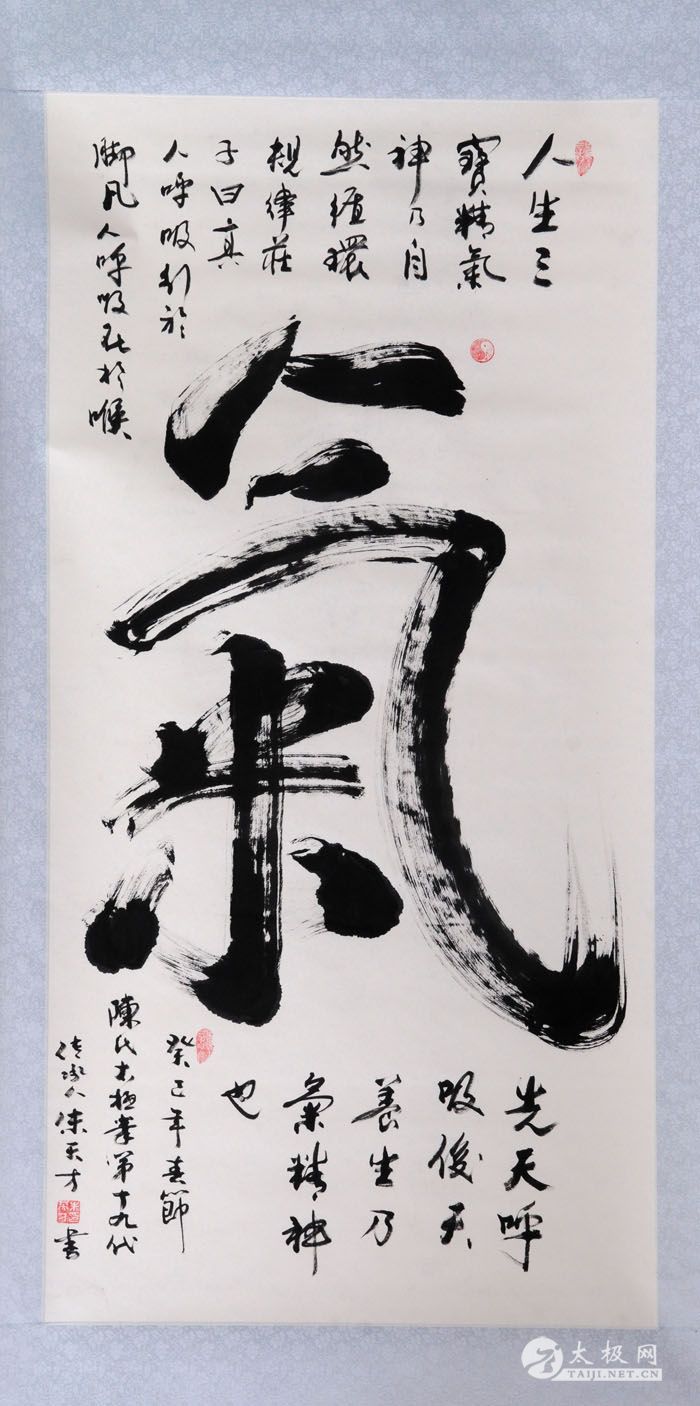 人生三
寶精氣
神乃自
然循環
規律莊
子曰真
人呼吸引於
脚凡人呼吸在於喉
氣
先天呼
吸後天
養生乃
氣精神
也
癸巳年春節
陳氏太極拳第十九代
传承人陈天才
書
太极网
TAIJI.NET.CN